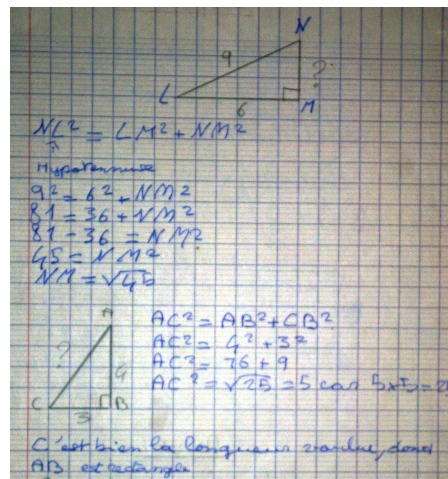 N
9
?
L
6
M
NL² = LM² + NM²
Hypotennuse
9² = 6² + NM²
81 = 36 + NM²
81 - 36 = NM²
45 = NM²
NM = √45
A
?
4
C
3
B
AC² = AB² + CB²
AC² = 4² + 3²
AC² = 16 + 9
AC² = √25 = 5 car 5x5 = 2
C'est bien la longueur voulue, donc
AB est rectangle